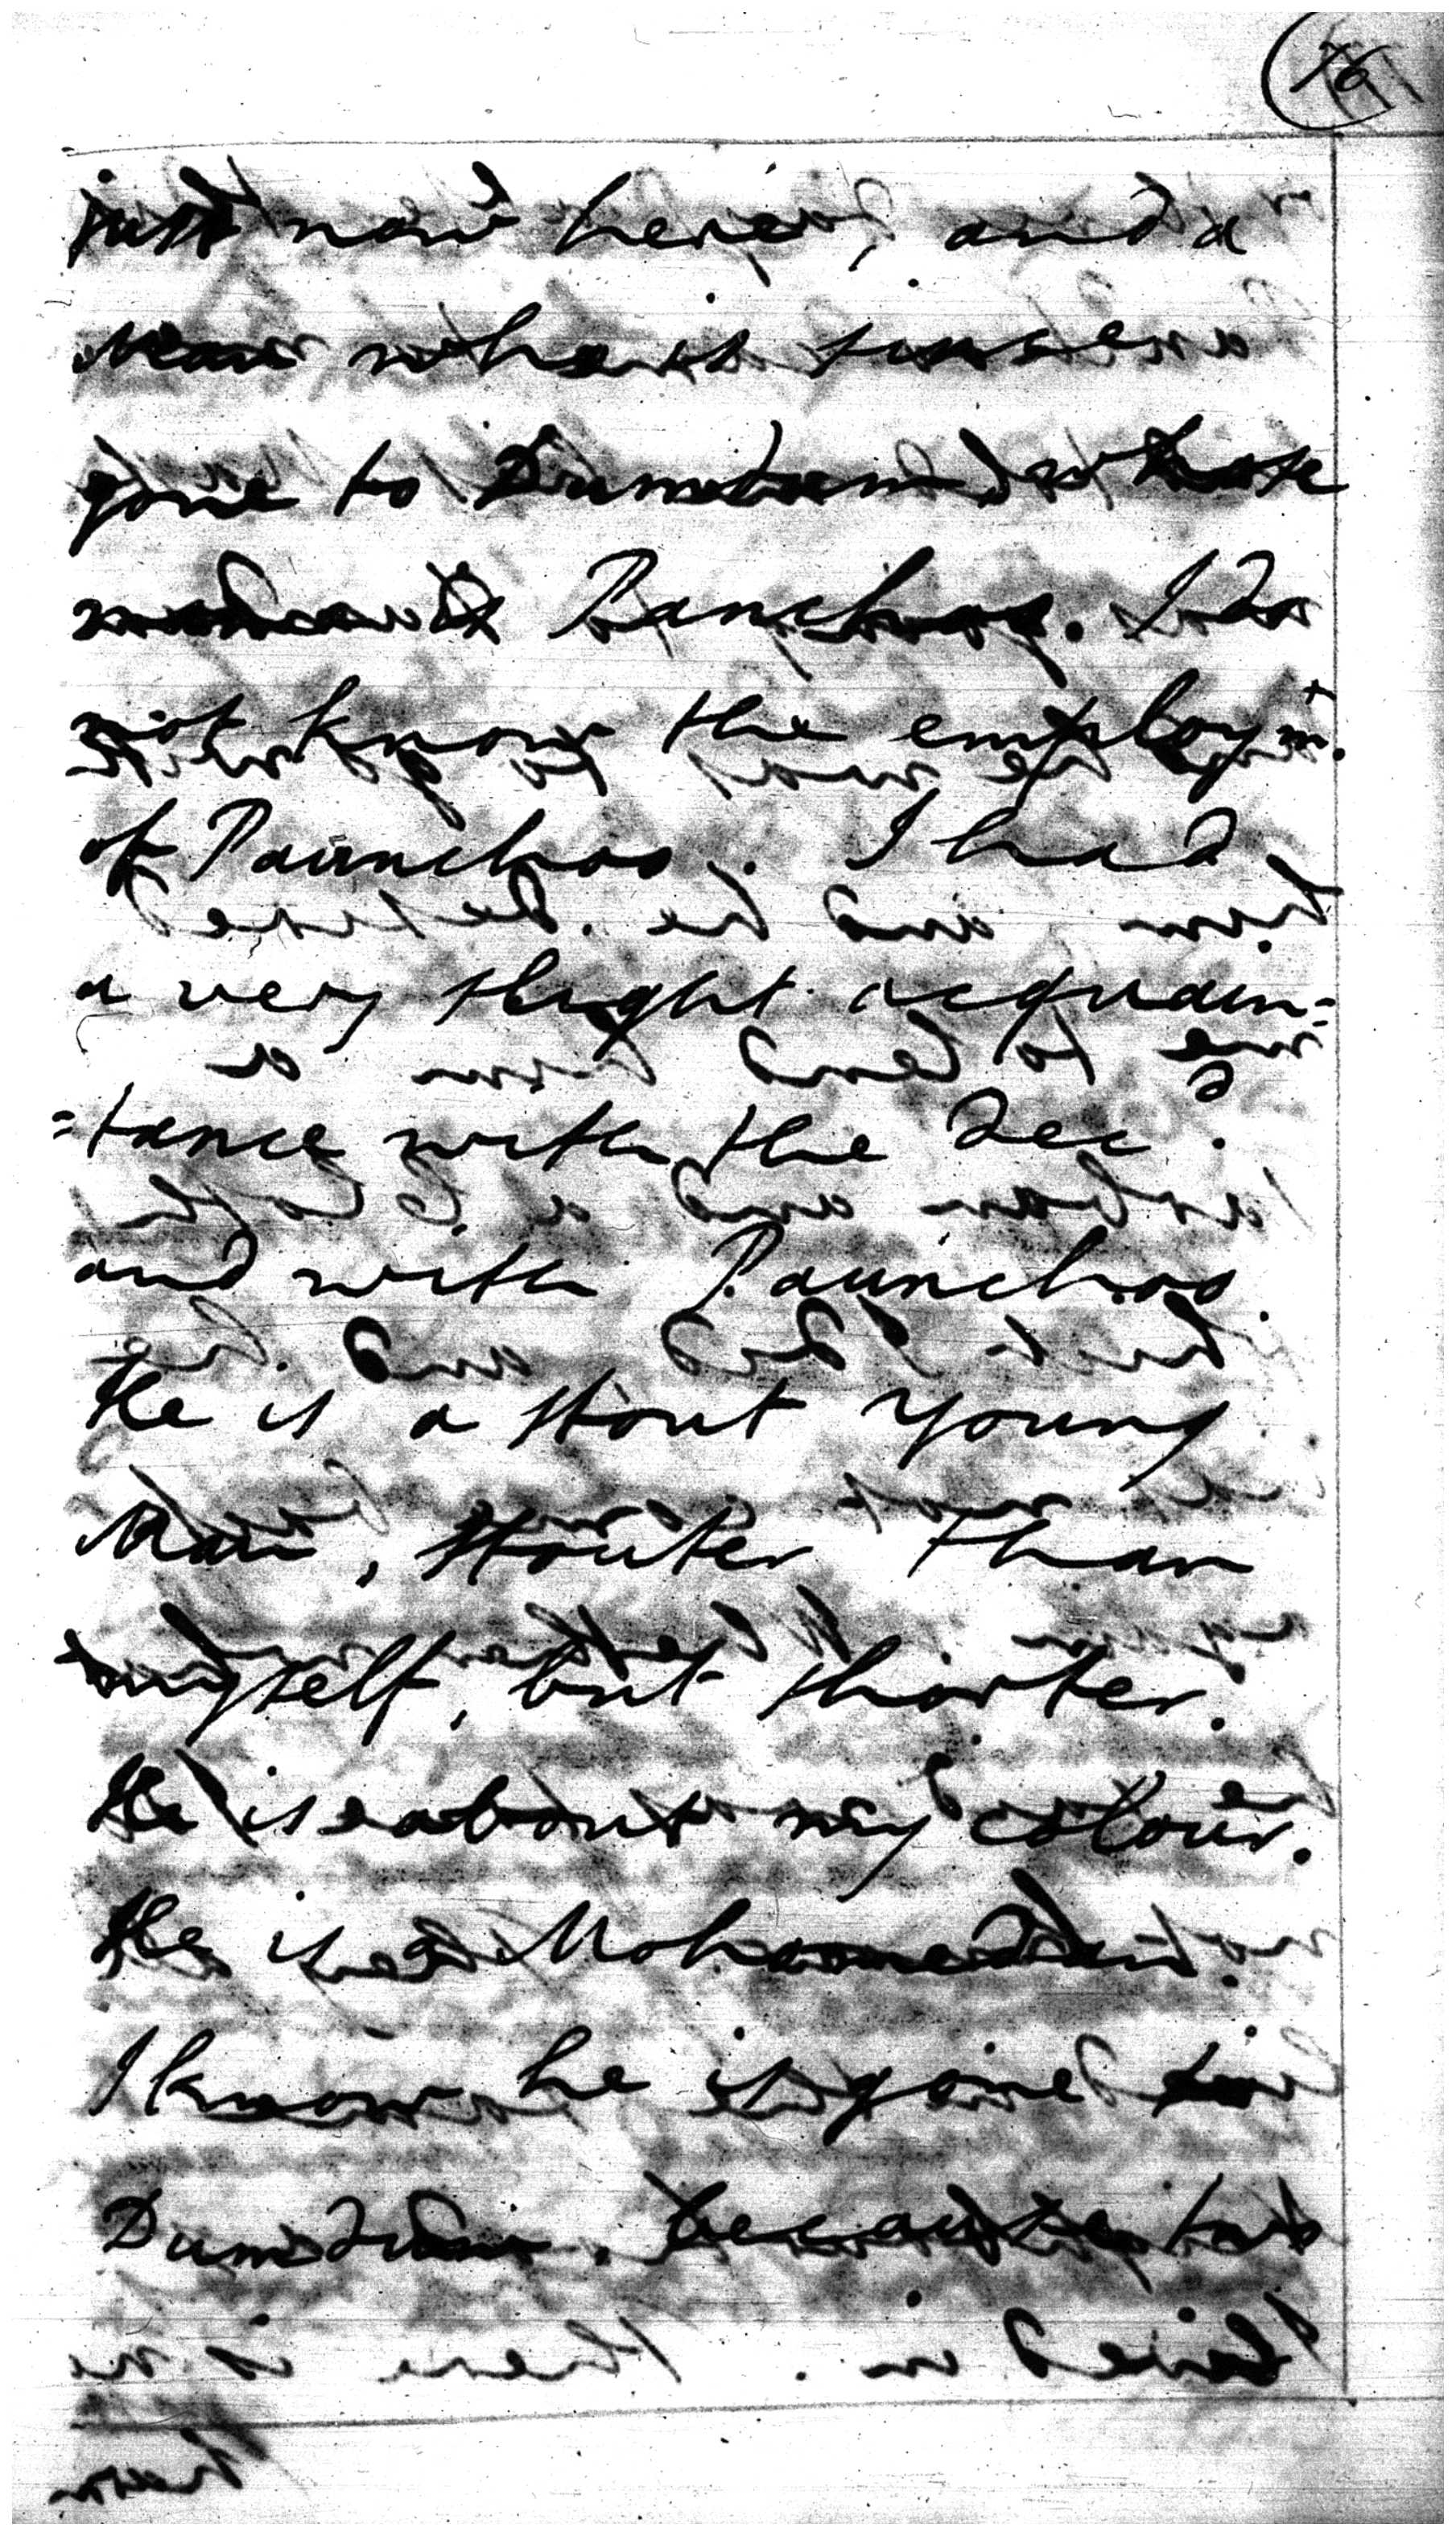 76
just now here, and a
Man who is since
gone to Dumdum, whose
name is Panchoo. I do
not know the employmt.
of Paunchoo. I had
a very slight acquain=
=tance with the Decd.
and with Paunchoo.
He is a stout young
Man, stouter than
myself, but shorter.
He is about my colour.
He is a Mohamedan.
I know he is gone to
Dumdum, because two